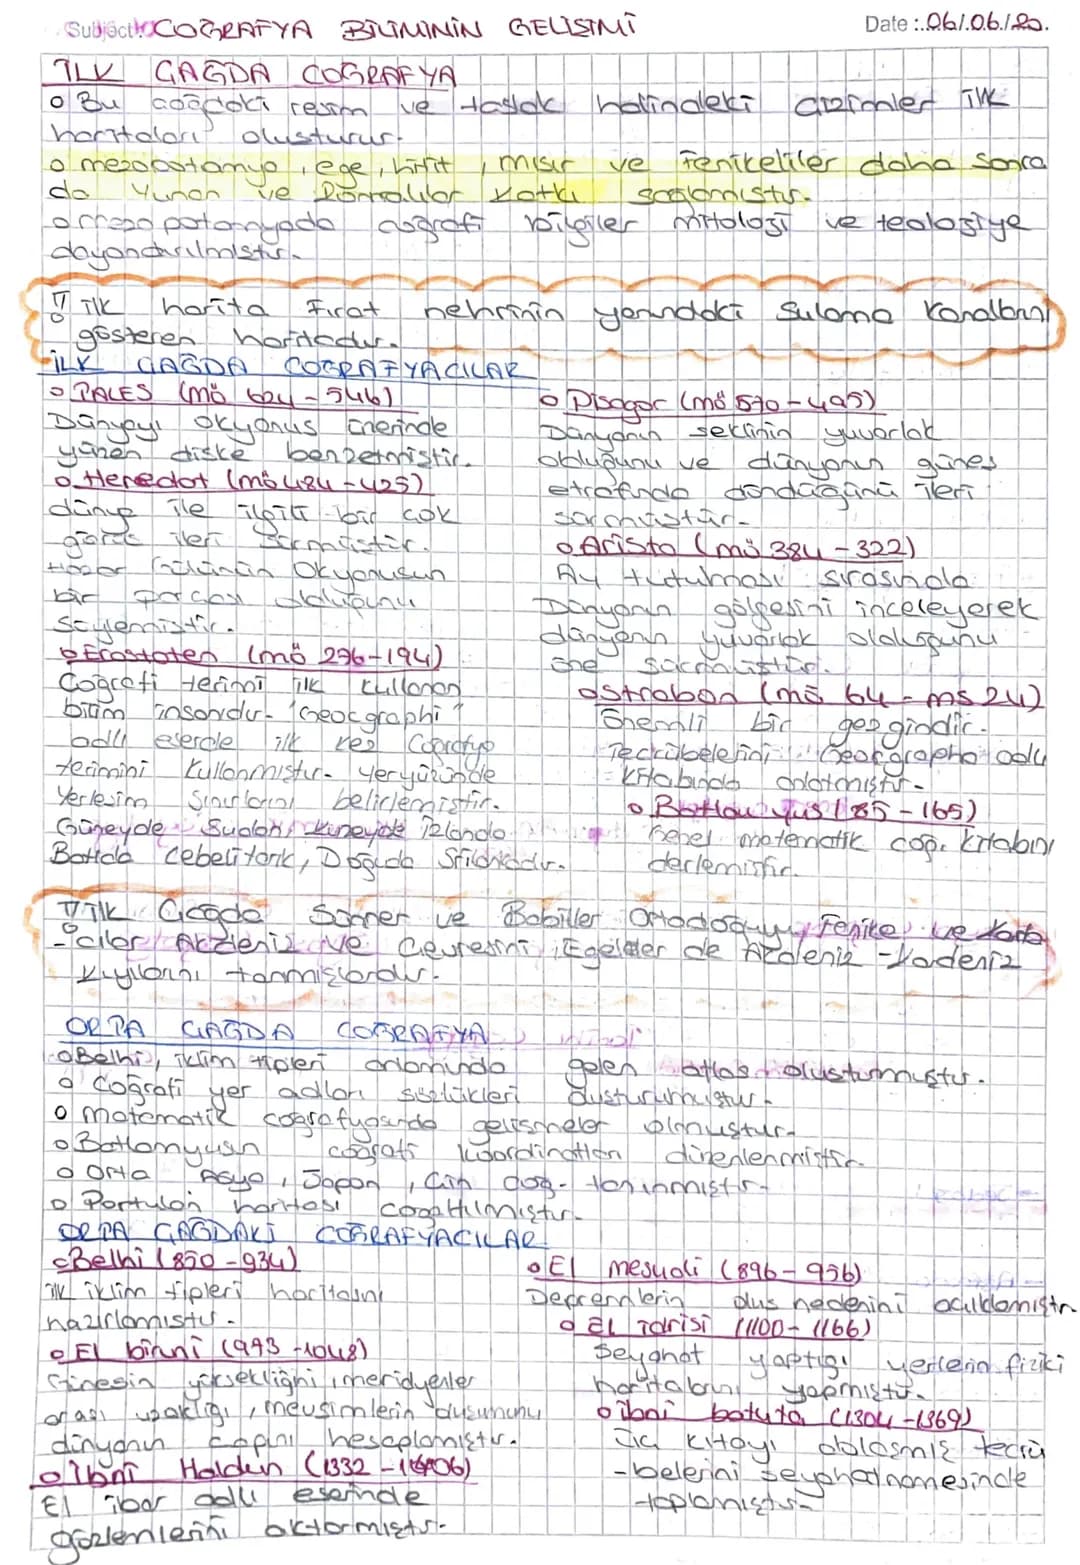 Subject: COĞRAFYA BİLİMİNİN GELİŞİMİ
Date :..06/.06./20.
İLK ÇAĞDA COĞRAFYA
o Bu çağdaki resim ve taslak halindeki çizimler ilk
haritaları oluşturur.
o mezopotamya, ege, hitit, mısır ve Fenikeliler daha sonra
da Yunan ve Romalılar katkı sağlamıştır.
o mezopotamyada coğrafi bilgiler mitoloji ve teolojiye
dayandırılmıştır.
İlk harita Fırat nehrinin yanındaki Sulama Kanallarını
gösteren haritadır.
İLK ÇAĞDA COĞRAFYACILAR
o TALES (mö 624-546)
Dünyayı okyanus üzerinde
yüzen diske benzetmiştir.
o Heredot (mö 484-425)
dünya ile ilgili bir çok
görüş ileri sürmüştür.
Hazar Gölünün Okyanusun
bir parçası olduğunu
söylemiştir.
o Erastoten (mö 276-194)
Coğrafi terimi ilk kullanan
bilim insanıdır. "Geocgraphi"
adlı eserde ilk kez Coğrafya
terimini kullanmıştır. Yeryüzünde
Yerleşim Sınırlarını belirlemiştir.
Güneyde Sudan, kuzeyde İzlanda
Batıda Cebelitarık, Doğuda
o Pisagor (mö 570-495)
Dünyanın şeklinin yuvarlak
olduğunu ve dünyanın güneş
etrafında döndüğünü ileri
sürmüştür.
o Aristo (mö 384-322)
Ay tutulması sırasında
Dünyanın gölgesini inceleyerek
dünyanın yuvarlak olduğunu
öne sürmüştür.
o Strabon (mö 64-ms 24)
Önemli bir gezgindir.
Tecrübelerini Geographa adlı
Kitabında anlatmıştır.
o Batlamyus (85-165)
Genel matematik coğ. kitabını
derlemiştir.
İlk Çağda Sümer ve Babiller Ortadoğuyu, Fenike ve Karta
-cılar Akdeniz ve Çevresini, Egeliler de Akdeniz -Kadeniz
kıyılarını tanımışlardır.
ORTA ÇAĞDA COĞRAFYA
o Belhi, iklim tipleri anlamında gelen atlas oluşturmuştur.
o Coğrafi yer adları sözlükleri oluşturulmuştur.
o matematik coğrafyasında gelişmeler olmuştur.
o Batlamyusun coğrafi koordinatları düzenlenmiştir.
o Orta Asya, Japon, Çin coğ. tanınmıştır.
o Portulan haritası çoğaltılmıştır.
ORTA ÇAĞDAKİ COĞRAFYACILAR
o Belhi (850-934)
ilk iklim tipleri haritasını
hazırlamıştır.
o El biruni (973-1048)
Güneşin yüksekliğini, meridyenler
arası uzaklığı, mevsimlerin oluşumunu
dünyanın çapını hesaplamıştır.
o İbni Haldun (1332-1406)
El ibar adlı eserinde
gözlemlerini aktarmıştır.
o El mesudi (896-956)
Depremlerin oluş nedenini açıklamıştır.
o El idrisi (1100-1166)
Seyahat yaptığı yerlerin fiziki
haritalarını yapmıştır.
o ibni batuta (1304-1369)
Üç kıtayı dolaşmış tecrü
-belerini seyahatnamesinde
toplamıştır.